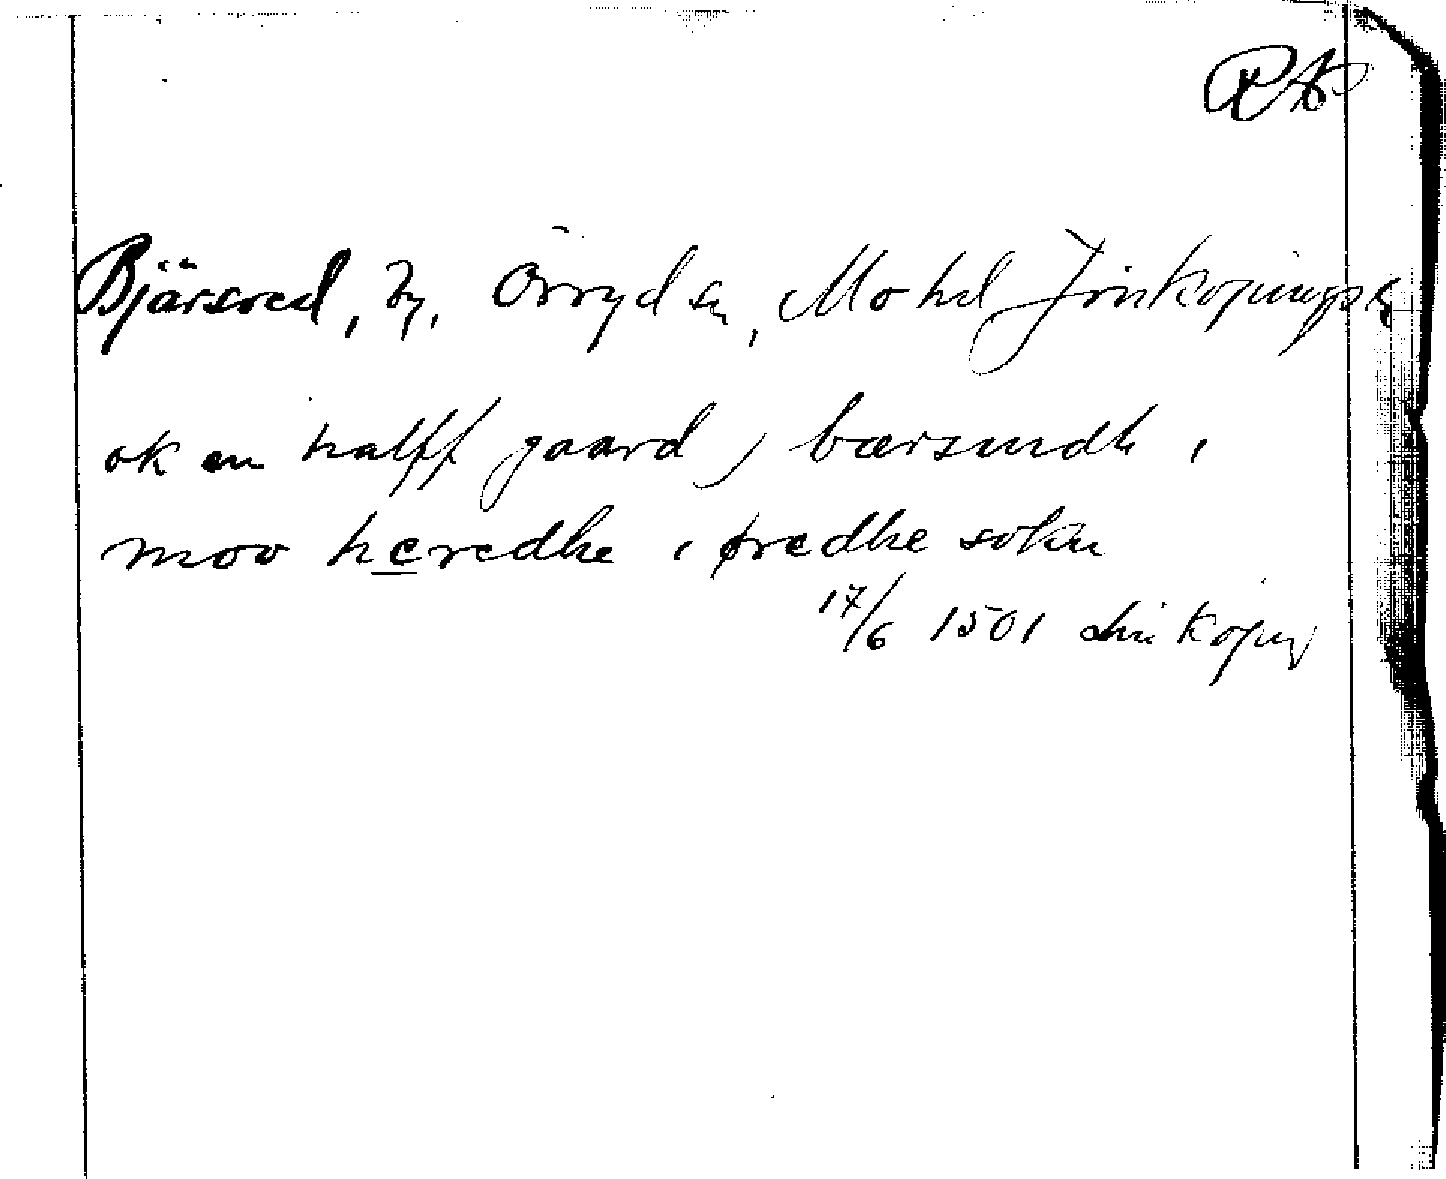 RA
Bjärsved, by, Örryd sn, Mo hd Jönköpings
ok en halff gaard j bærsuedh i
moo heredhe i øredhe sokn
17/6 1501 Linköping